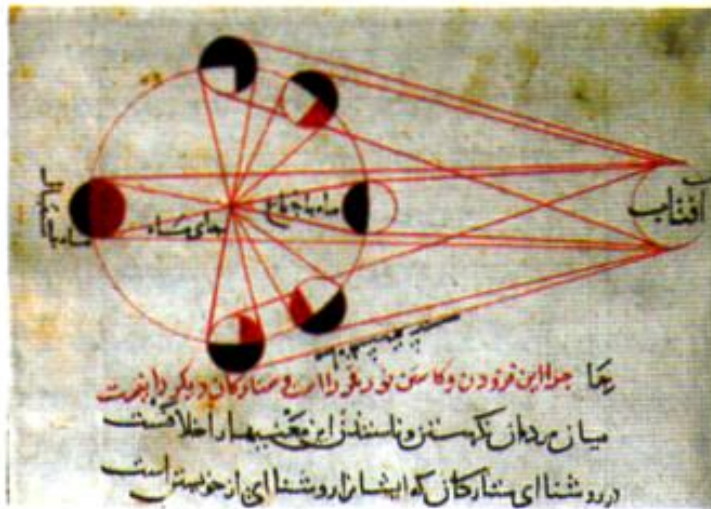 افتاب
ماه باجتماع
ماه باستقبال
چرا این فزودن وکاستن نور قمر را است و ستارکان دیکر را نیست
میان مردمان این معنی بسیار اختلافست
در روشنا ای ستارکان که ایشانرا روشنا ای از خویشتن است